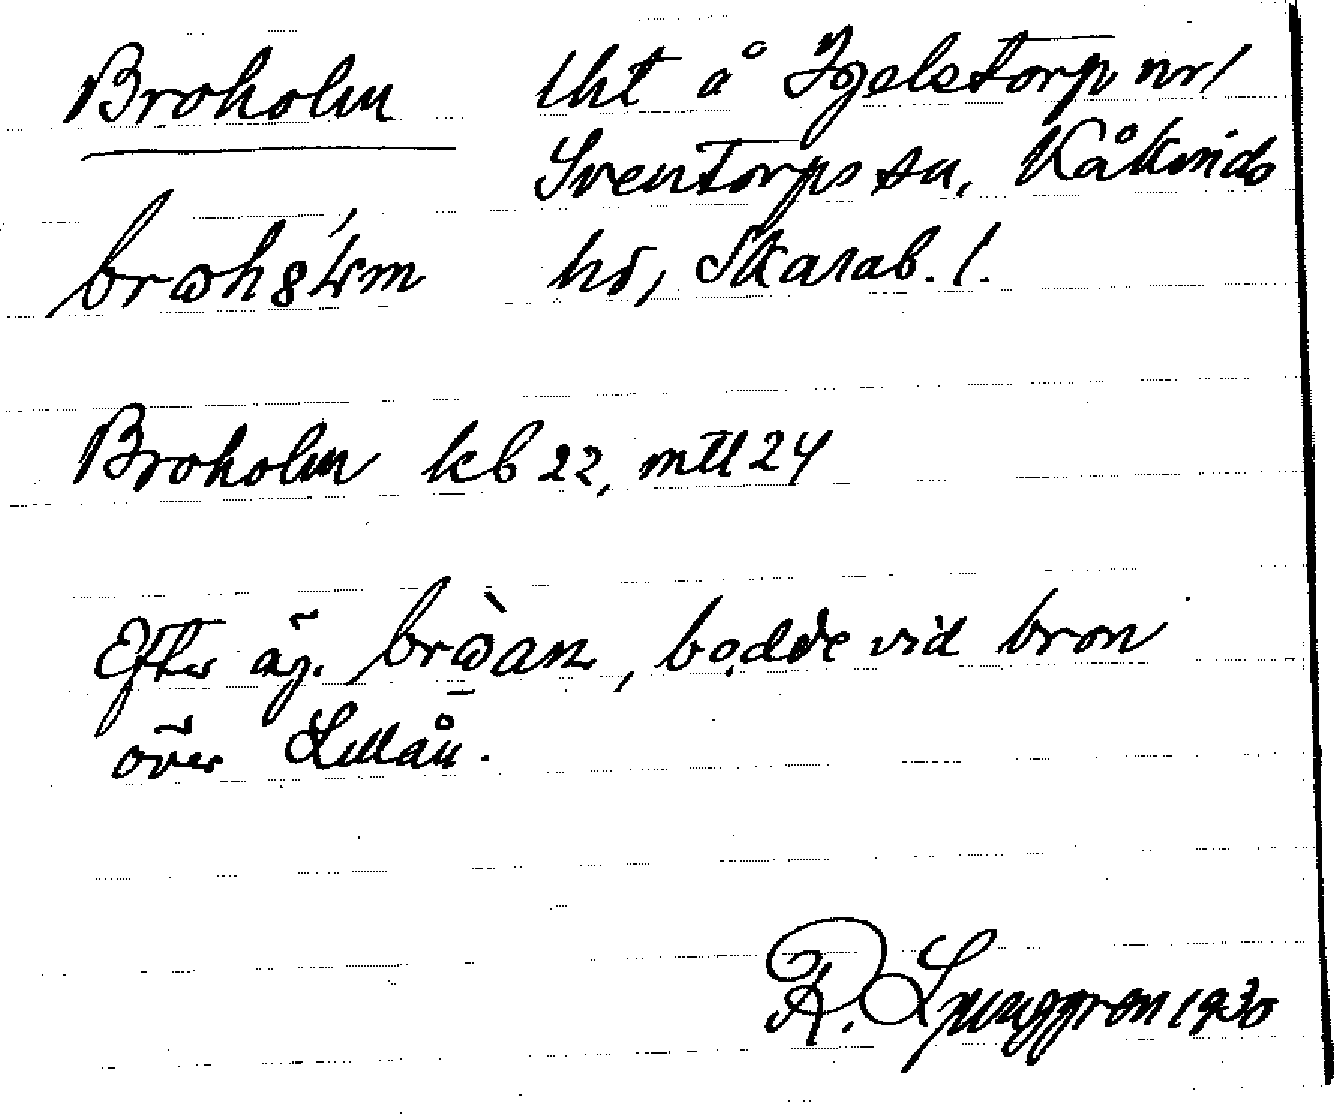 Broholm lht å Igelstorp nr 1
Sventorps sn, Kåkinds
hd, Skarab. l.
Broholm kb 22, mtl 24
Efter äg. , bodde vid bron
över Lillån.
R. Ljunggren 1930